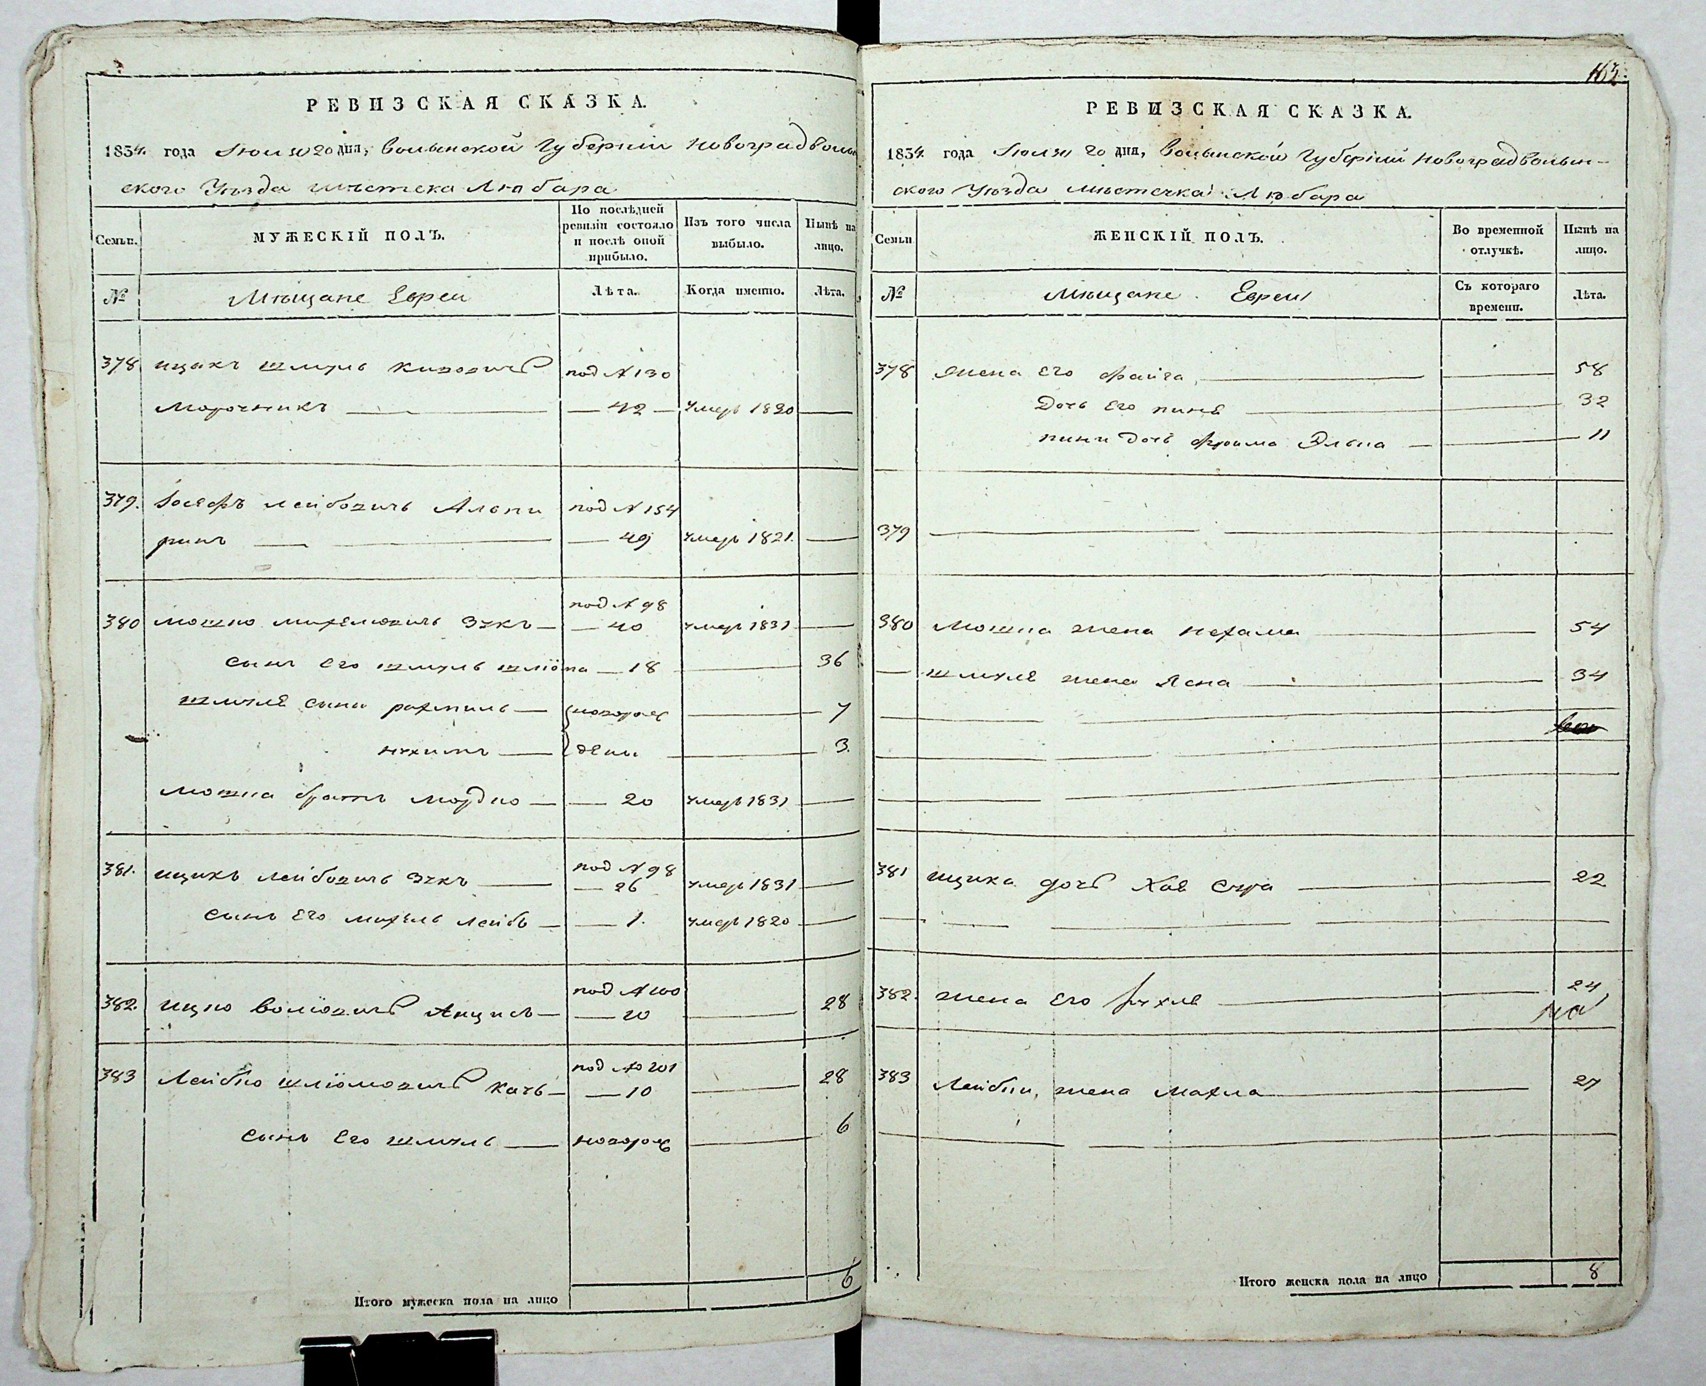 РЕВИЗСКАЯ СКАЗКА.
1834. года Июля 20 дня, Волынской Губерніи Новоградволын
ского Уѣзда мѣстечка Любара
Семьи. МУЖЕСКІЙ ПОЛЪ. По послѣдней ревизіи состояло и послѣ оной прибыло. Изъ того числа выбыло. Нынѣ на лицо.
№ Мѣщане Евреи Лѣта. Когда именно. Лѣта.
378 ицыкъ шмуль под № 130
42 умеръ 1820
379. Іосефъ лейбовичъ Альпи под № 154
ринъ 49 умеръ 1821.
под № 98
380 мошко михелювичъ Зукъ 40 умеръ 1831
сынъ его шмуль шліома 18 36
шмуля сыны рахмиль новорож 7
нухимъ дены 3.
мошка братъ мордко 20 умеръ 1831
под № 98
381. ицикъ лейбовичъ Зукъ 26 умеръ 1831
сынъ его михель лейбъ 1. умеръ 1820
под № 200
382. ицко волювичъ Анцисъ 20 28
под № 201
383 лейбко шліомовичъ качъ 10 28
сынъ его шмуль новорож 6
Итого мужеска пола на лицо 6
РЕВИЗСКАЯ СКАЗКА.
1834. года Июля 20 дня, Волынской Губерніи Новоградволын-
ского Уѣзда мѣстечка Любара
Семьи ЖЕНСКІЙ ПОЛЪ. Во временной отлучкѣ. Нынѣ на лицо.
№ Мѣщане Евреи Съ котораго времени. Лѣта.
378 жена его файга 58
Дочь его пиня 32
пини дочь фрима Элька 11
379
380 мошка жена нехама 54
шмуля жена Яена 34
381 ицика дочь Хая Сура 22
382. жена его рухля 24
383 Лейбки, жена махла 27
Итого женска пола на лицо 8